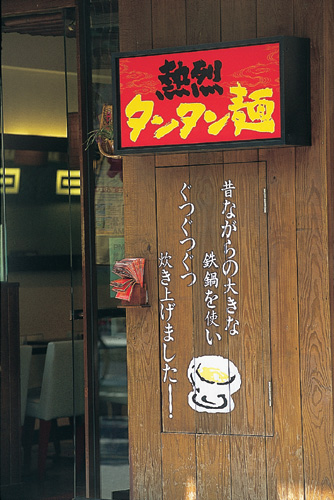 熱烈
タンタン麺
昔ながらの大きな
鉄鍋を使い
ぐつぐつぐつ
炊き上げました―!